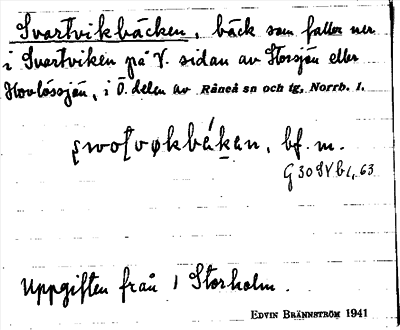 Svartvikbäcken, bäck som faller ner
i Svartviken på V. sidan av Storsjön eller
i Ö. delen av Råneå sn och tg, Norrb. l.
bf. m.
G 30 SV b 1, 63
Uppgiften från 1 Storholm.
EDVIN BRÄNNSTRÖM 1941